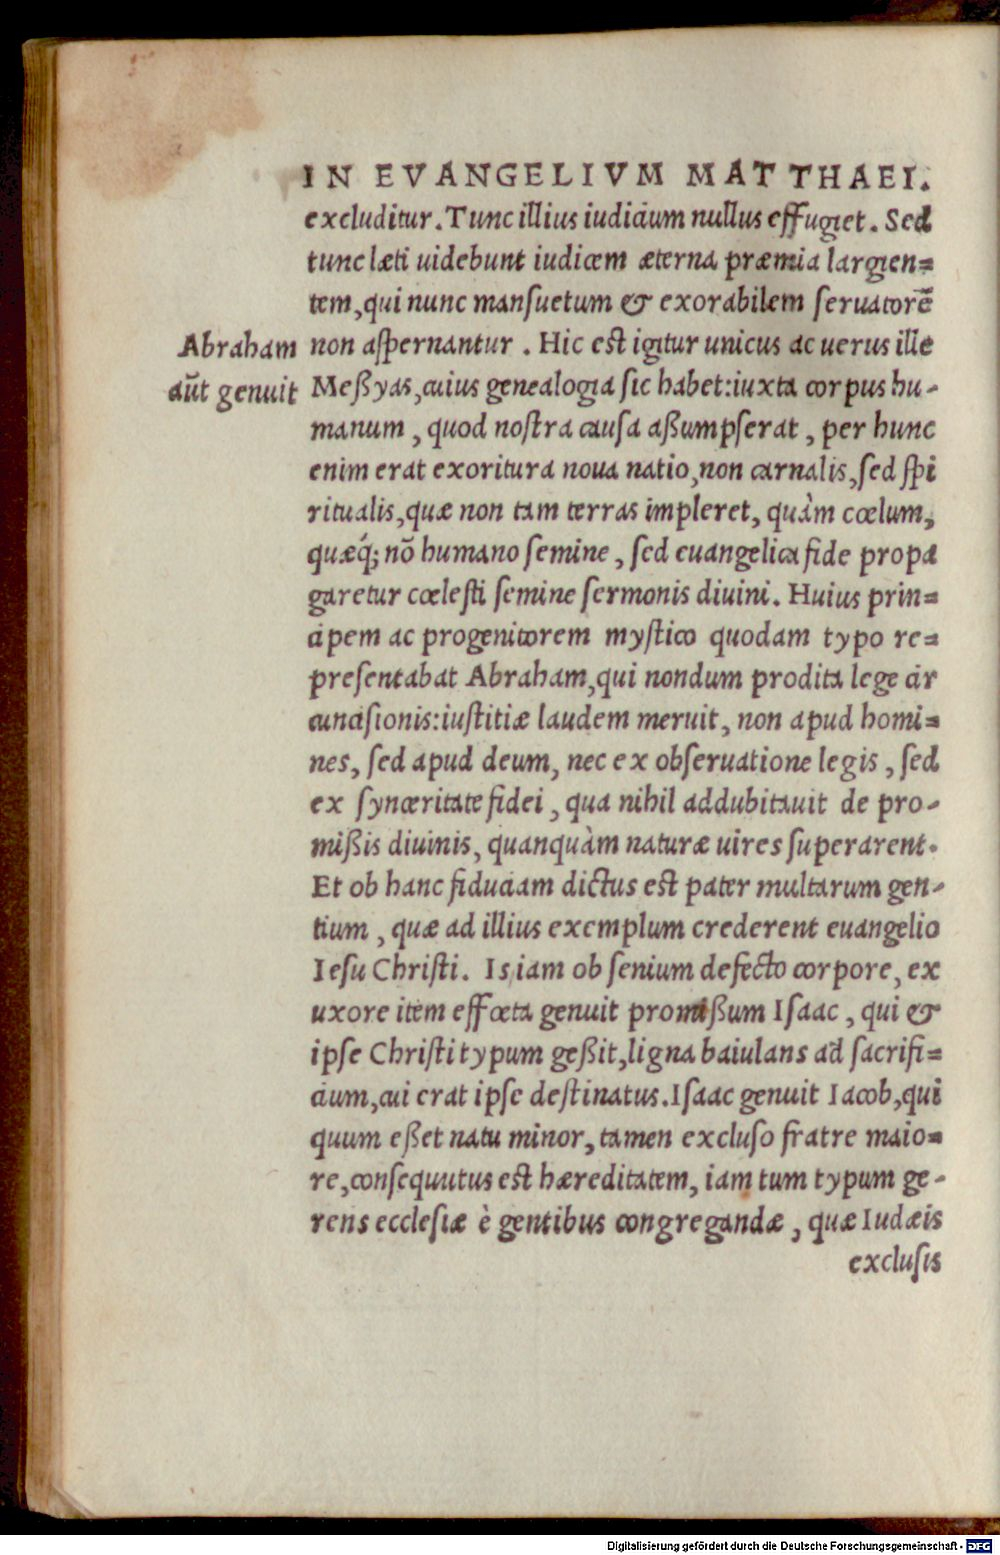 IN EVANGELIVM MATTHAEI.
excluditur. Tunc illius iudicium nullus effugiet. Sed
tunc læti uidebunt iudicem æterna præmia largien=
tem, qui nunc mansuetum & exorabilem seruatorē
Abraham
aūt genuit
non aspernantur. Hic est igitur unicus ac uerus ille
Meßyas, cuius genealogia sic habet: iuxta corpus hu-
manum, quod nostra causa aßumpserat, per hunc
enim erat exoritura noua natio, non carnalis, sed spi
ritualis, quæ non tam terras impleret, quàm cœlum,
quæq́; nō humano semine, sed euangelica fide propa
garetur cœlesti semine sermonis diuini. Huius prin=
cipem ac progenitorem mystico quodam typo re=
presentabat Abraham, qui nondum prodita lege cir
cuncisionis: iustitiæ laudem meruit, non apud homi=
nes, sed apud deum, nec ex obseruatione legis, sed
ex synceritate fidei, qua nihil addubitauit de pro-
mißis diuinis, quanquàm naturæ uires superarent.
Et ob hanc fiduciam dictus est pater multarum gen-
tium, quæ ad illius exemplum crederent euangelio
Iesu Christi. Is iam ob senium defecto corpore, ex
uxore item effœta genuit promißum Isaac, qui &
ipse Christi typum geßit, ligna baiulans ad sacrifi=
cium, cui erat ipse destinatus. Isaac genuit Iacob, qui
quum eßet natu minor, tamen excluso fratre maio=
re, consequutus est hæreditatem, iam tum typum ge-
rens ecclesiæ è gentibus congregandæ, quæ Iudæis
exclusis
Digitalisierung gefördert durch die Deutsche Forschungsgemeinschaft - DFG